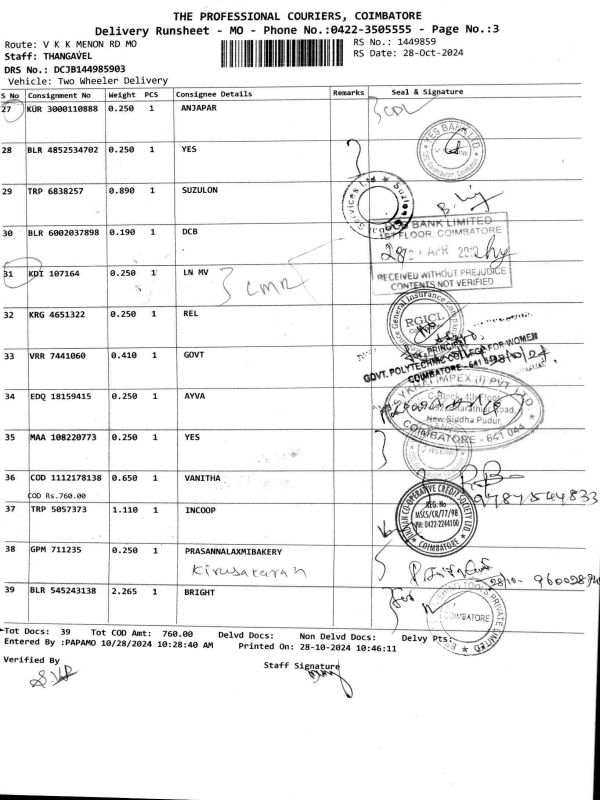 THE PROFESSIONAL COURIERS, COIMBATORE
Delivery Runsheet - MO - Phone No.:0422-3505555 - Page No.:3
Route: V K K MENON RD MO
RS No.: 1449859
Staff: THANGAVEL
RS Date: 28-Oct-2024
DRS No.: DCJB144985903
Vehicle: Two Wheeler Delivery
S No Consignment No Weight PCS Consignee Details Remarks Seal & Signature
27 KUR 3000110888 0.250 1 ANJAPAR
28 BLR 4852534702 0.250 1 YES
YES BANK LTD
29 TRP 6838257 0.890 1 SUZULON
Services Ltd ★ Suzlon
30 BLR 6002037898 0.190 1 DCB
BANK LIMITED
1ST FLOOR, COIMBATORE
RECEIVED WITHOUT PREJUDICE
CONTENTS NOT VERIFIED
31 KDI 107164 0.250 1 LN MV
32 KRG 4651322 0.250 1 REL
General Insurance
RGICL
33 VRR 7441060 0.410 1 GOVT
PRINCIPAL
GOVT. POLYTECHNIC COLLEGE FOR WOMEN
COIMBATORE - 641
34 EDQ 18159415 0.250 1 AYVA
IMPEX (I) PVT LTD
New Siddha Pudur,
COIMBATORE - 641 044
35 MAA 108220773 0.250 1 YES
36 COD 1112178138 0.650 1 VANITHA
COD Rs.760.00
9787544833
37 TRP 5057373 1.110 1 INCOOP
CO-OPERATIVE CREDIT SOCIETY LTD
REG. No
MSCS/CR/77/98
PH: 0422-2244100
COIMBATORE
38 GPM 711235 0.250 1 PRASANNALAXMIBAKERY
39 BLR 545243138 2.265 1 BRIGHT
TOOLS PRIVATE LIMITED
COIMBATORE
Tot Docs: 39 Tot COD Amt: 760.00 Delvd Docs: Non Delvd Docs: Delvy Pts:
Entered By :PAPAMO 10/28/2024 10:28:40 AM Printed On: 28-10-2024 10:46:11
Verified By
Staff Signature